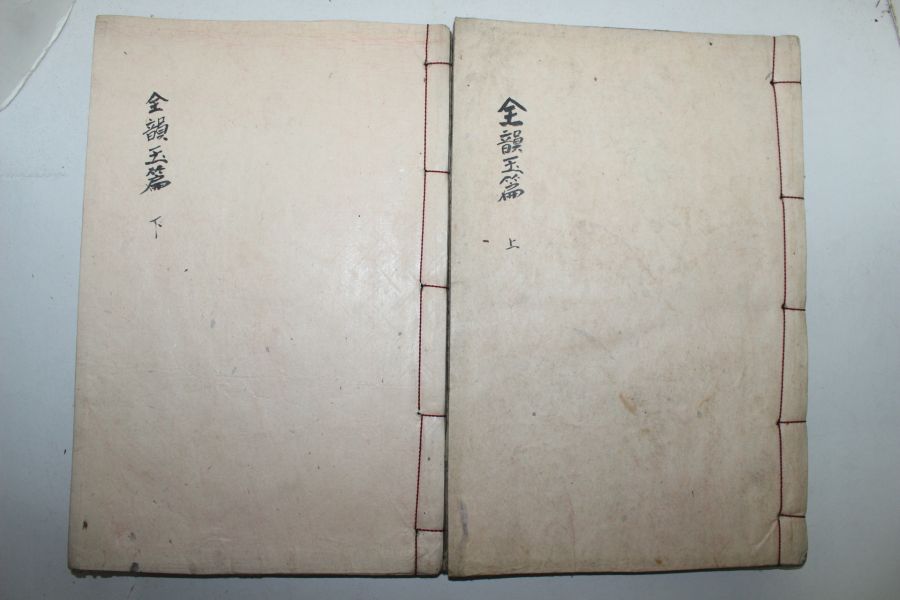 全韻玉篇 上
全韻玉篇 下